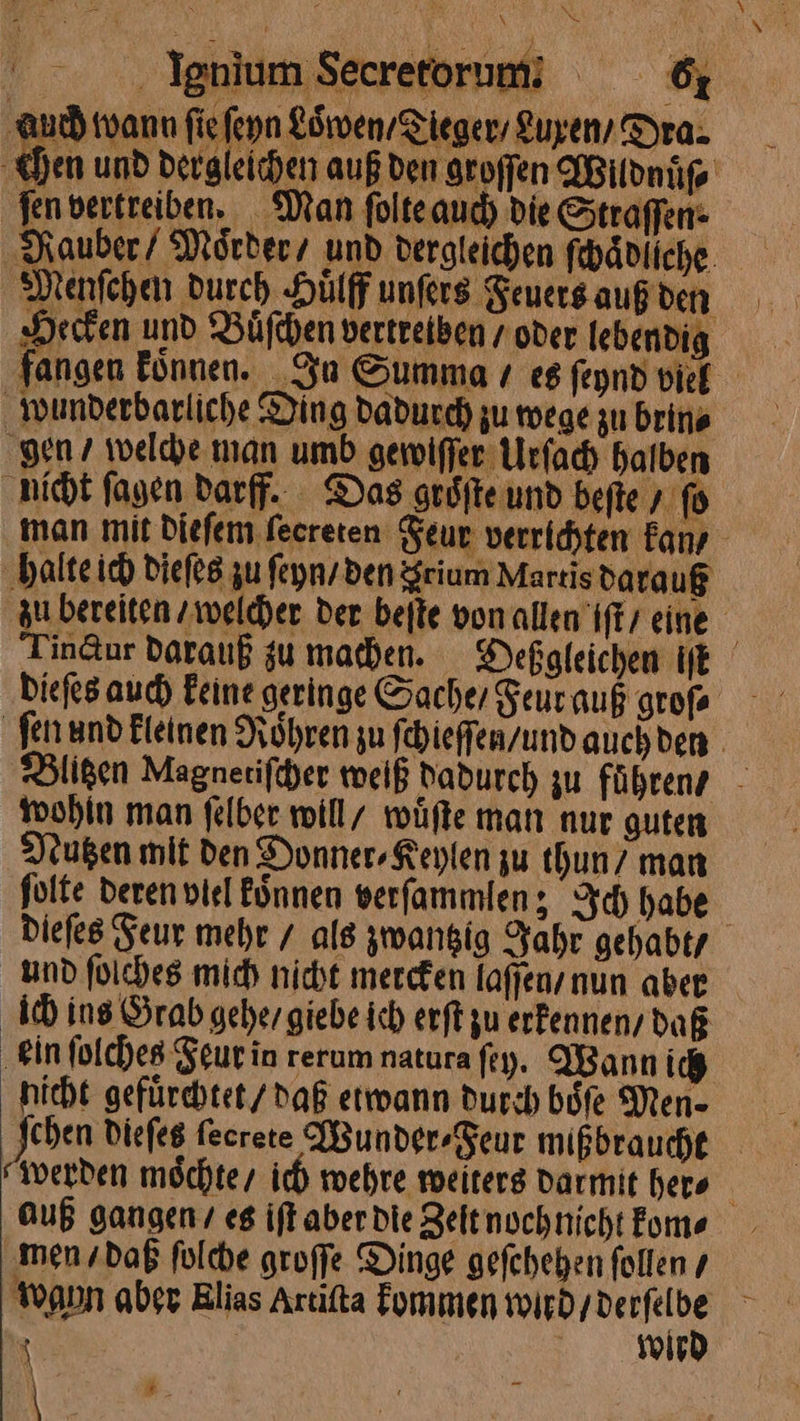 Ignium Secretorum. 61
auch wann ſie ſeyn Loͤwen/Tieger/Luxen/Dra-
chen und dergleichen auß den groſſen Wildnuͤſ-
ſen vertreiben. Man ſolte auch die Straſſen-
Rauber/ Moͤrder/ und dergleichen ſchaͤdliche
Menſchen durch Huͤlff unſers Feuers auß den
Hecken und Buͤſchen vertreiben/ oder lebendig
fangen koͤnnen. In Summa/ es ſeynd viel
wunderbarliche Ding dadurch zu wege zu brin-
gen/ welche man umb gewiſſer Urſach halben
nicht ſagen darff. Das groͤſte und beſte/ ſo
man mit dieſem ſecreten Feur verrichten kan/
halte ich dieſes zu ſeyn/ den Martis darauß
zu bereiten/ welcher der beſte von allen iſt/ eine
Tinctur darauß zu machen. Deßgleichen iſt
dieſes auch keine geringe Sache/ Feur auß groſ-
ſen und kleinen Roͤhren zu ſchieſſen/und auch den
Blitzen Magnetiſcher weiß dadurch zu fuͤhren/
wohin man ſelber will/ wuͤſte man nur guten
Nutzen mit den Donner-Keylen zu thun/ man
ſolte deren viel koͤnnen verſammlen; Ich habe
dieſes Feur mehr/ als zwantzig Jahr gehabt/
und ſolches mich nicht mercken laſſen/ nun aber
ich ins Grab gehe/ giebe ich erſt zu erkennen/ daß
ein ſolches Feur in rerum natura ſey. Wann ich
nicht gefuͤrchtet/ daß etwann durch boͤſe Men-
ſchen dieſes ſecrete Wunder-Feur mißbraucht
werden moͤchte/ ich wehre weiters darmit her-
auß gangen/ es iſt aber die Zeit noch nicht kom-
men/ daß ſolche groſſe Dinge geſchehen ſollen/
wann aber Elias Artiſta kommen wird/ derſelbe
wird